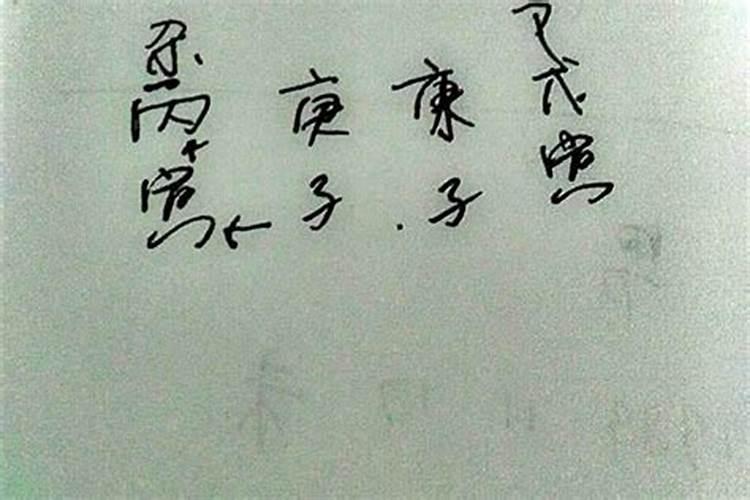 杀丙寅
庚子
庚子
戊寅